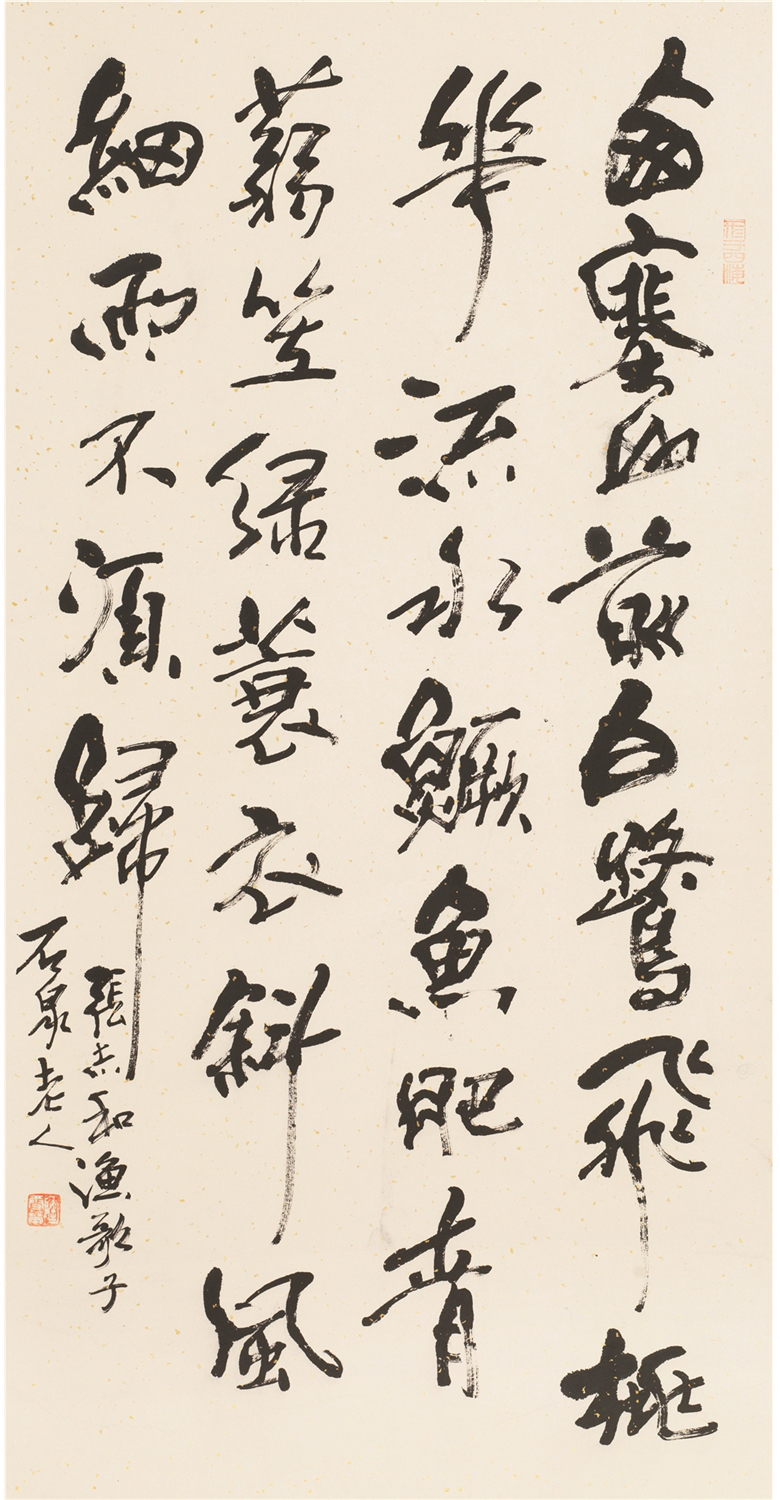 西塞山前白鷺飛桃
華流水鱖魚肥青
蒻笠綠蓑衣斜風
細雨不須歸
張志和漁歌子
石泉老人